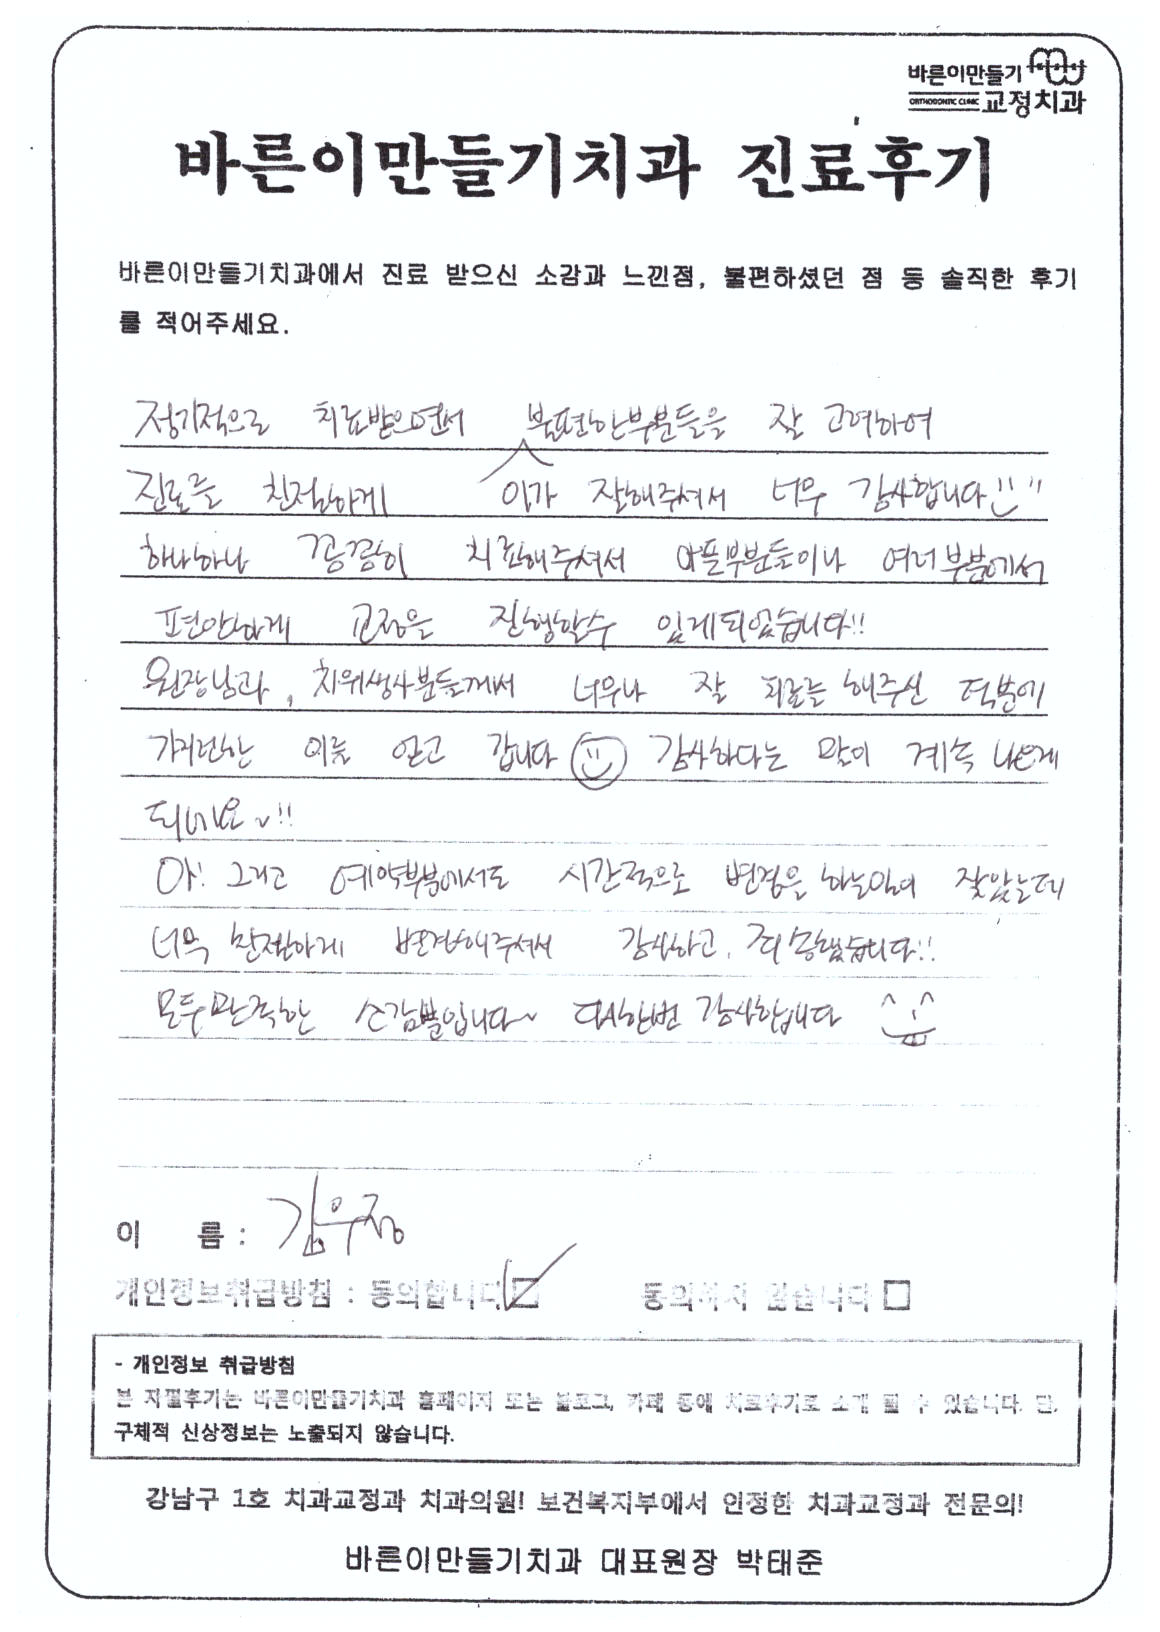 바른이만들기
ORTHODONTIC CLINIC 교정치과
바른이만들기치과 진료후기
바른이만들기치과에서 진료 받으신 소감과 느낀점, 불편하셨던 점 등 솔직한 후기
를 적어주세요.
정기적으로 치료받으면서 불편한부분들을 잘 고려하여
진료를 친절하게 이가 잘해주셔서 너무 감사합니다
하나하나 꼼꼼히 치료해주셔서 아픈부분들이나 여러부분에서
편안하게 교정을 진행할수 있게되었습니다!!
원장님과, 치위생사분들께서 너무나 잘 치료를 해주신 덕분에
가지런한 이를 안고 갑니다 감사하다는 말이 계속 나오게
되네요~!!
아! 그리고 예약부분에서도 시간적으로 변경을 하는일이 잦았는데
너무 친절하게 변경해주셔서 감사하고, 죄송했습니다!!
모두 만족한 소감뿐입니다~ 다시한번 감사합니다
이 름 : 김우정
개인정보취급방침 : 동의합니다 동의하지 않습니다
- 개인정보 취급방침
본 자필후기는 바른이만들기치과 홈페이지 또는 블로그, 카페 등에 치료후기로 소개 될 수 있습니다. 단,
구체적 신상정보는 노출되지 않습니다.
강남구 1호 치과교정과 치과의원! 보건복지부에서 인정한 치과교정과 전문의!
바른이만들기치과 대표원장 박태준